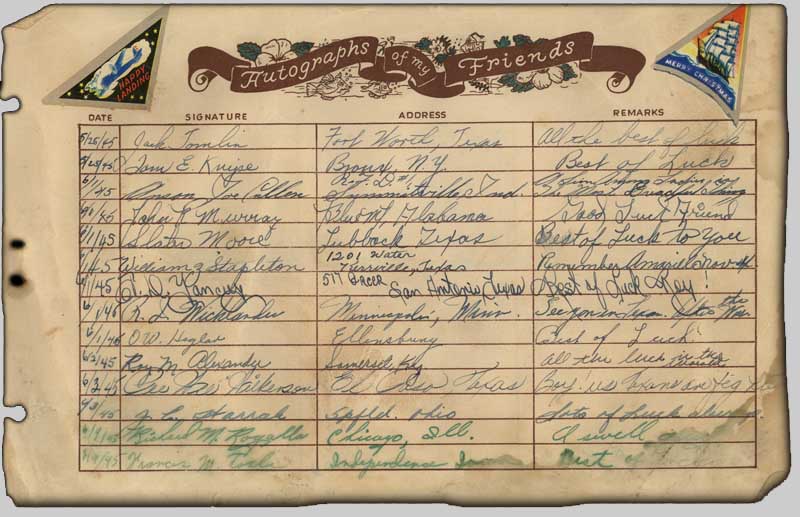 HAPPY LANDING
Autographs of my Friends
MERRY CHRISTMAS
DATE SIGNATURE ADDRESS REMARKS
5/25/45 Jack Tomlin Fort Worth, Texas All the best of luck
5/25/45 Tom E. Knipe Bronx, N.Y. Best of Luck
6/1/45 Joe Cullen R.F.D.#1 Summittville, Ind. The Most
6/1/45 John P. Murray Alabama Good Luck Friend
6/1/45 Moore Lubbock Texas Best of Luck To You
6/1/45 William Stapleton 1201 Water Kerrville, Texas Remember Amarillo
6/1/45 Yancey 517 San Antonio Texas Best of Luck Roy!
6/1/45 R. L. Minneapolis, Minn. See you in Texas after the War
6/1/45 O.W. Ellensburg Best of Luck!
6/2/45 Roy M. Alexander Somerset, Ky. All the luck in the world
6/3/45 Wilkerson El Paso Texas Boy! us Texans
Harrah Spfld. Ohio Lots of luck always.
Richard M. Rogalla Chicago, Ill. A swell
Francis M. Independence Best of